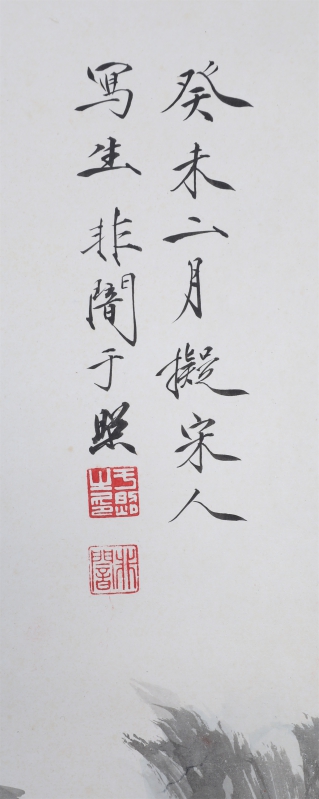 癸未二月擬宋人
寫生非闇于照
于照之印
非闇